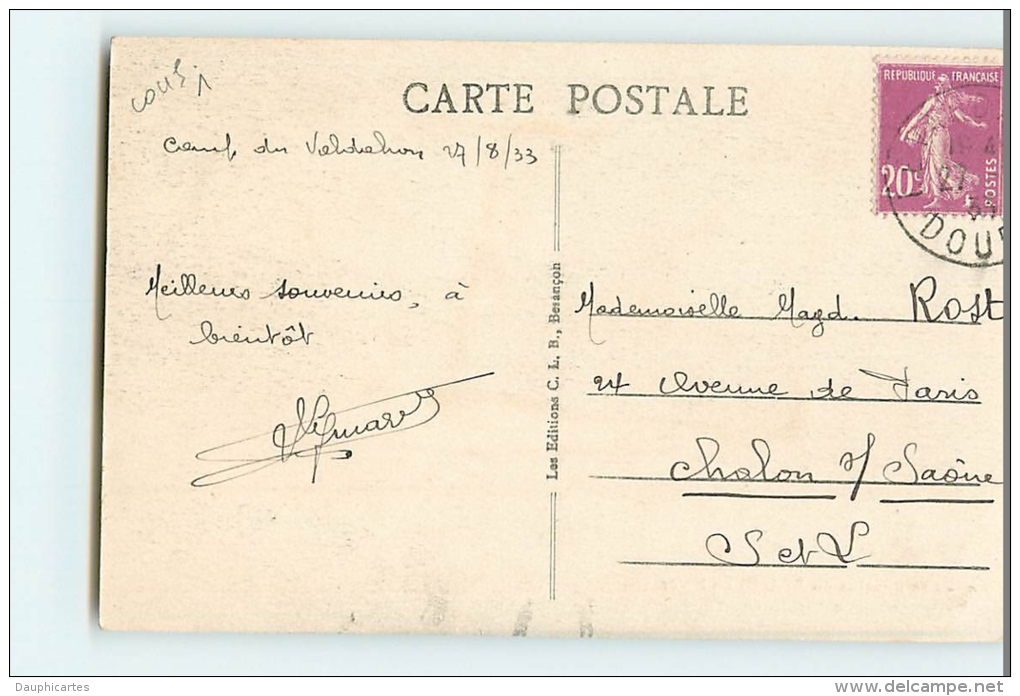 CARTE POSTALE
RÉPUBLIQUE FRANÇAISE
20c
POSTES
27
DOU
Camp du Valdahon 27/8/33
Meilleurs souvenirs, à
bientôt
Les Editions C. L. B., Besançon
Mademoiselle Magd. ROST
24 Avenue de Paris
Chalon s/ Saône
S et L
Dauphicartes
www.delcampe.net